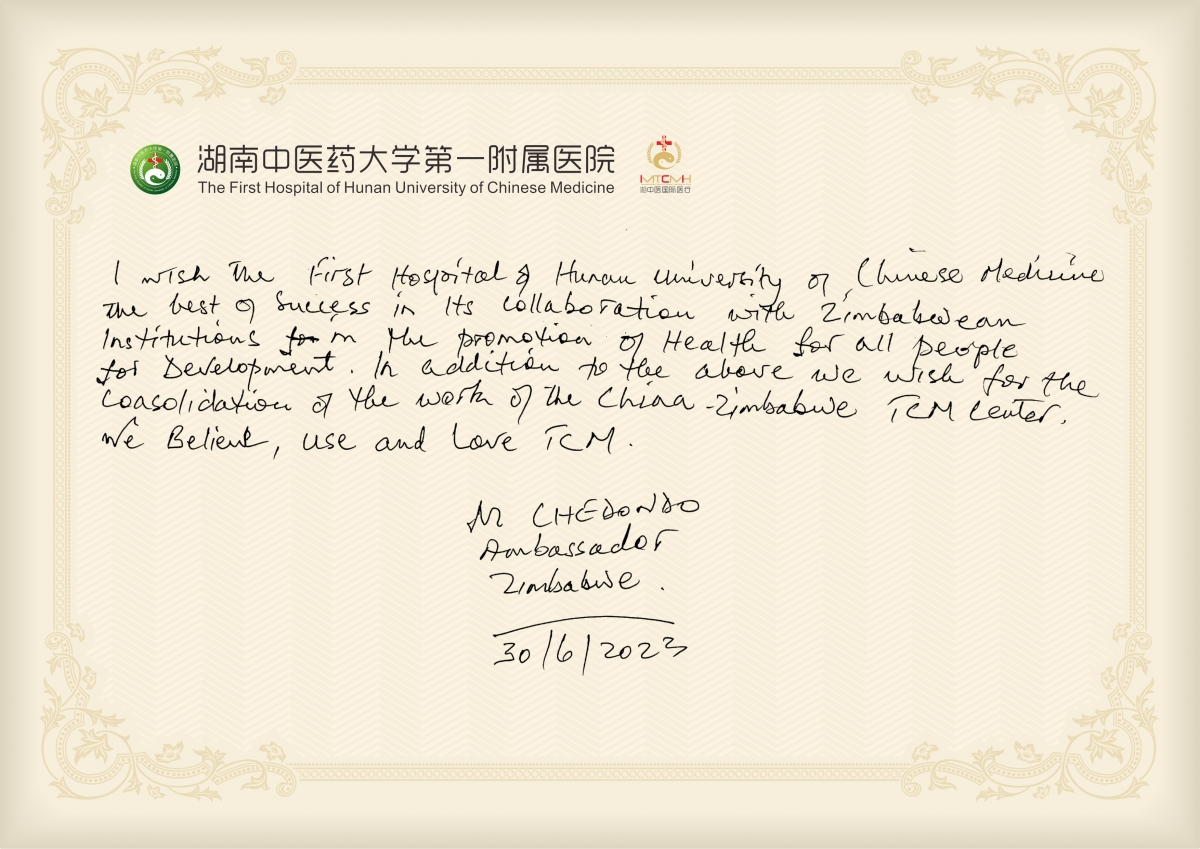 湖南中医药大学第一附属医院
The First Hospital of Hunan University of Chinese Medicine
IMTCMH
湖中医国际医疗
I wish the First Hospital of Hunan University of Chinese Medicine
the best of Success in Its collaboration with Zimbabwean
Institutions for in the promotion of Health for all people
for Development. In addition to the above we wish for the
Consolidation of the work of the China-Zimbabwe TCM Center.
We Believe, use and Love TCM.
M CHEDONDO
Ambassador
Zimbabwe.
30/6/2023